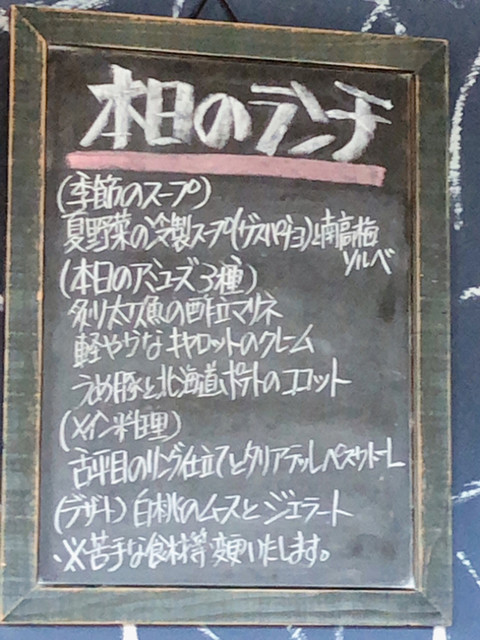 本日のランチ
(季節のスープ)
夏野菜の冷製スープ(ガスパチョ)と南高梅
ソルベ
(本日のアミューズ3種)
炙り太刀魚の酢立マリネ
軽やかなキャロットのクレーム
うめ豚と北海道ポテトのココット
(メイン料理)
舌平目のリング仕立てとタリアテッレ ペスカトーレ
(デザート) 白桃のムースとジェラート
・※苦手な食材等変更いたします。